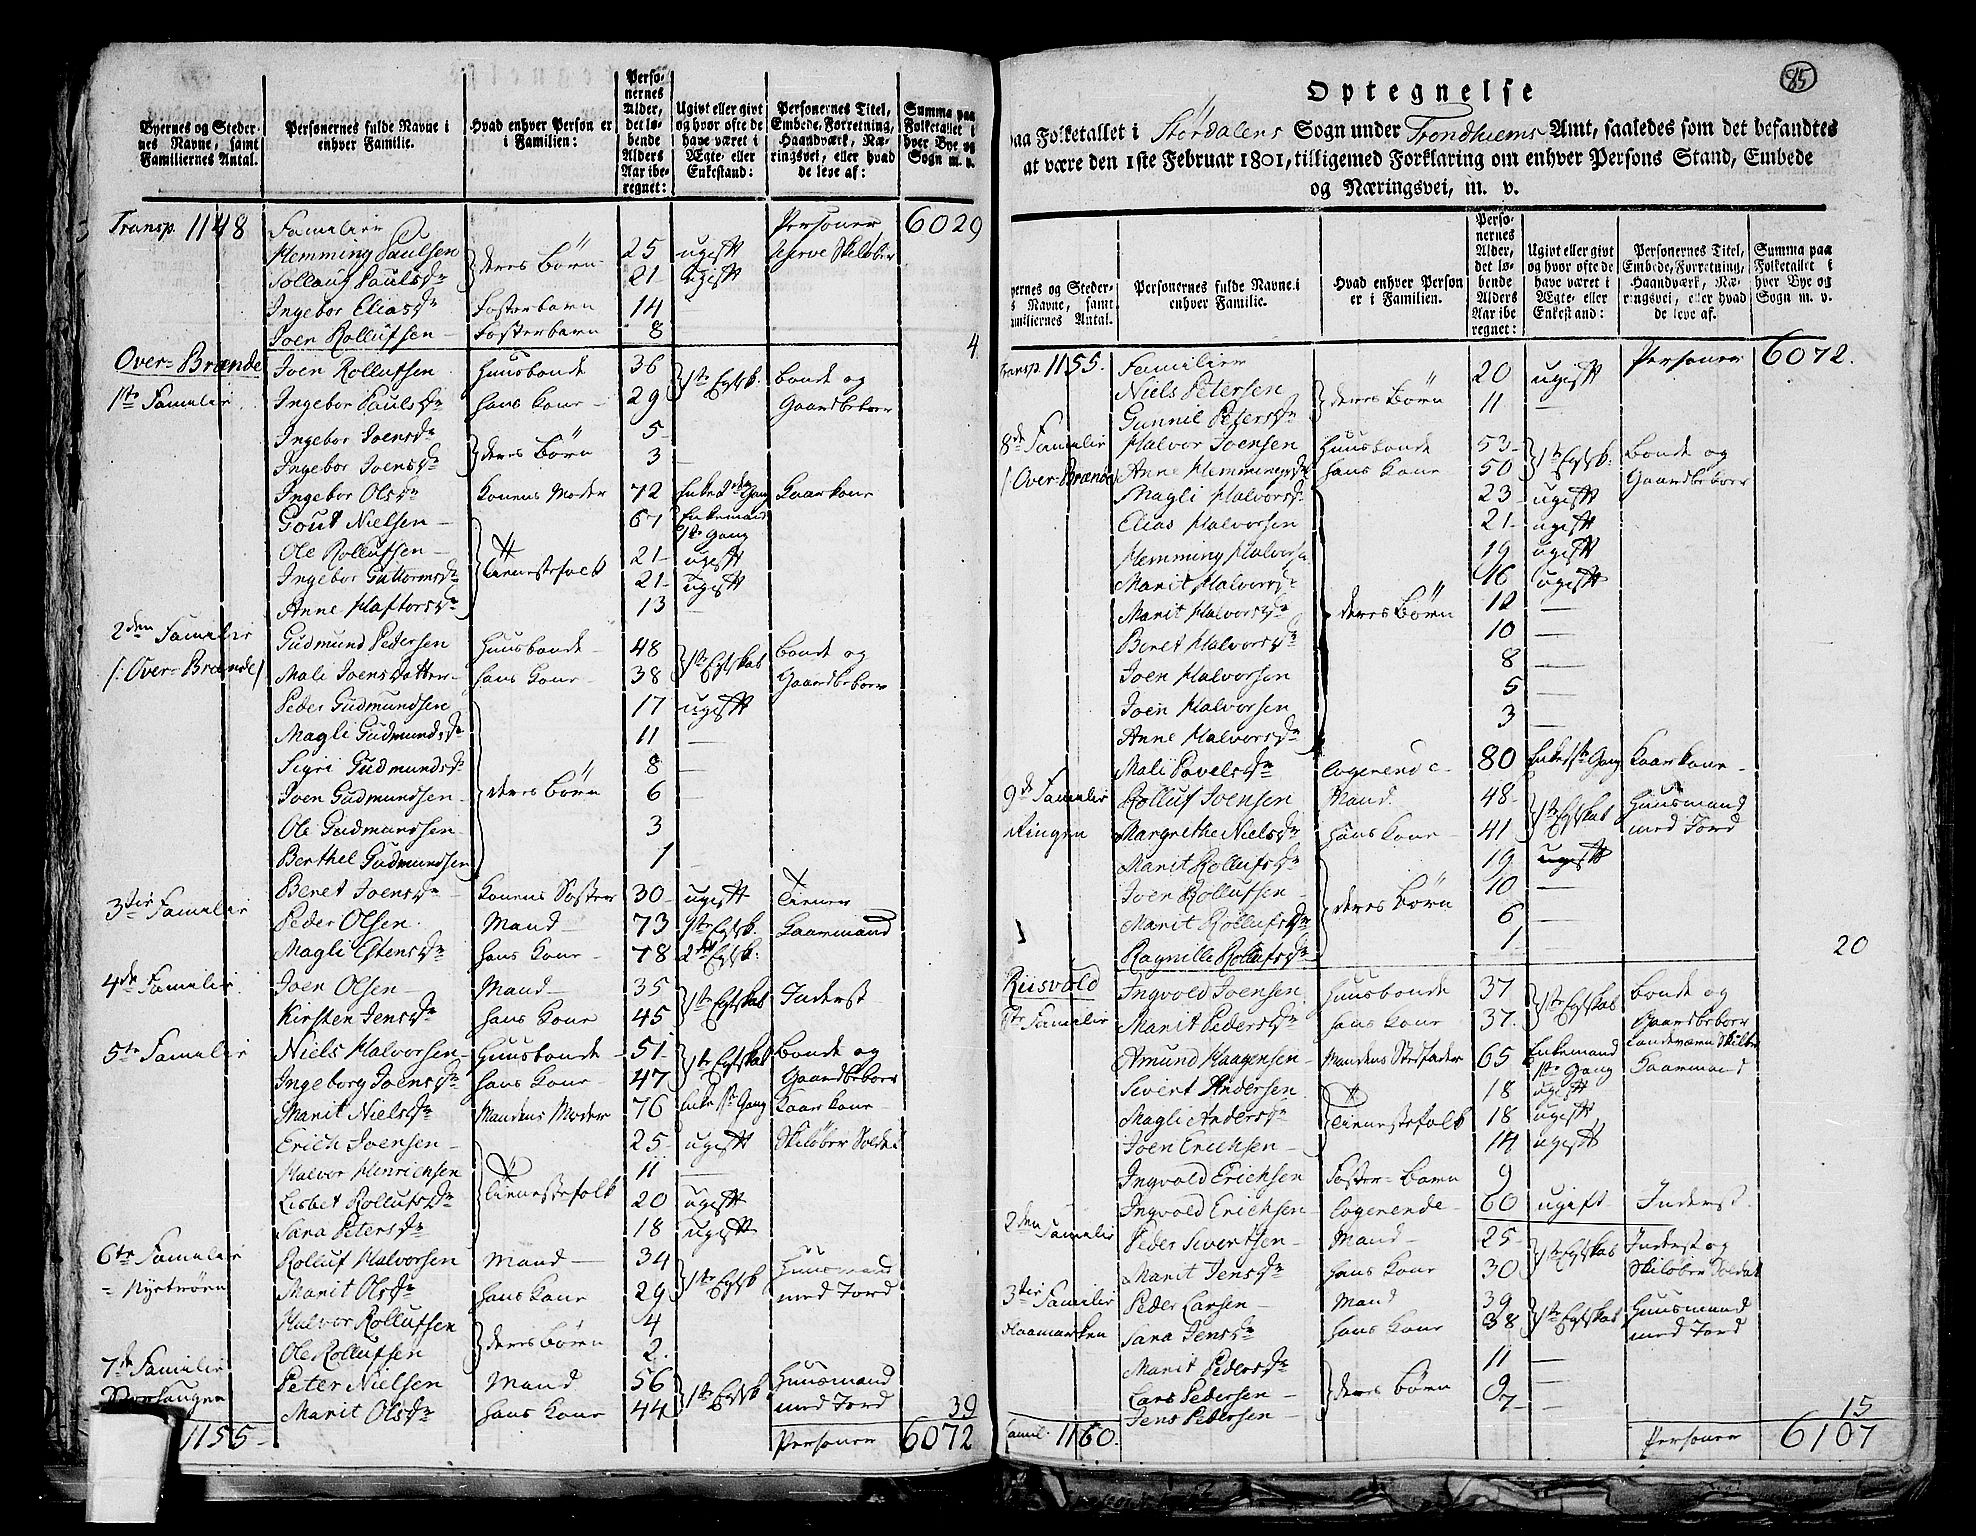 Byernes og Steder-
nes Navne, samt
Familiernes Antal.
Personernes fulde Navne i
enhver Familie.
Hvad enhver Person er
i Familien:
Perso-
nernes
Alder,
det lø-
bende
Alders
Aar ibe-
regnet:
Ugivt eller givt
og hvor ofte de
have været i
Ægte- eller
Enkestand:
Personernes Titel,
Embede, Forretning,
Haandværk, Næ-
ringsvei, eller hvad
de leve af:
Summa paa
Folketallet i
hver Bye og
Sogn m. v.
Transp. 1148 Familier Personer 6029
Hemming Paulsen deres Børn 25 ugift Skiløber
Sollaug Paulsdr 21 ugift
Ingebor Eliasdr Fosterbarn 14 —
Joen Rollufsen Fosterbarn 8 4
Over-Brænde Joen Rollufsen Huusbonde 36 1ste Egtsk. Bonde og
1ste Familie Ingebor Paulsdr hans Kone 29 Gaardbeboer
Ingebor Joensdr deres Børn 5
Ingebor Joensdr 3 —
Ingebor Olsdr Konens Moder 72 Enke 2den Gang Kaarkone
Gout Nielsen 67 Enkemand
1ste Gang
Ole Rollufsen Tienestefolk 21 ugift
Ingebor Guttormsdr 21 ugift
Anne Haftorsdr 13 —
2den Familie Gudmund Pedersen Huusbonde 48 1ste Egtskab Bonde og
/: Over-Brænde / Mali Joensdatter hans Kone 38 Gaardbeboer
Peder Gudmundsen 17 ugift
Magli Gudmundsdr 11 —
Sigri Gudmundsdr 8 —
Joen Gudmundsen deres Børn 6 —
Ole Gudmundsen 3 —
Berthel Gudmundsen 1 —
Beret Joensdr Konens Søster 30 ugift Tiener
3die Familie Peder Olsen Mand 73 1ste Egtsk. Kaarmand
Magli Estensdr hans Kone 78 2det Egtsk:
4de Familie Joen Olsen Mand 35 1ste Egtskab Inderst
Kirsten Jensdr hans Kone 45
5te Familie Niels Halvorsen Huusbonde 51 1ste Egtskab Bonde og
Ingeborg Joensdr hans Kone 47 Gaardbeboer
Marit Nielsdr Mandens Moder 76 Enke 1ste Gang Kaarkone
Erich Joensen 25 ugift Skiløber Soldat
Halvor Henrichsen Tienestefolk 11 —
Lisbet Rollufsdr 20 ugift
Sara Petersdr 18 ugift
6te Familie Rolluf Halvorsen Mand 34 1ste Egtsk Huusmand
Nystrøen Marit Olsdr hans Kone 29 med Jord
Halvor Rollufsen deres Børn 4
Ole Rollufsen 2.
7de Familie Peter Nielsen Mand 56 1ste Egtsk Huusmand
Marit Olsdr hans Kone 44 med Jord 39
1155 Personer 6072
85
Optegnelse
paa Folketallet i Størdalens Sogn under Trondhiems Amt, saaledes som det befandtes
at være den 1ste Februar 1801, tilligemed Forklaring om enhver Persons Stand, Embede
og Næringsvei, m. v.
yernes og Steder-
s Navne, samt
amiliernes Antal.
Personernes fulde Navne i
enhver Familie.
Hvad enhver Person
er i Familien.
Perso-
nernes
Alder,
det lø-
bende
Alders
Aar ibe
regnet:
Ugivt eller givt
og hvor ofte de
have været i
Ægte- eller
Enkestand:
Personernes Titel,
Embede, Forretning,
Haandværk, Næ-
ringsvei, eller hvad
de leve af.
Summa paa
Folketallet i
hver Bye og
Sogn m. v.
Transp. 1155. Familier Personer 6072.
Niels Petersen deres Børn 20 ugift
Gunnil Petersdr 11 —
8de Familie Halvor Joensen Huusbonde 53 1ste Egtsk. Bonde og
/: Over-Brænde / Anne Hemmingsdr hans Kone 50 Gaardbeboer
Magli Halvorsdr 23 ugift
Elias Halvorsen 21 ugift
Hemming Halvorsen 19 ugift
Marit Halvorsdr 16 ugift
Marit Halvorsdr deres Børn 12 —
Beret Halvorsdr 10 —
Joen Halvorsen 8 —
Joen Halvorsen 5 —
Anne Halvorsdr 3 —
Mali Povelsdr Logerende 80 Enke 1ste Gang Kaarkone
9de Familie Rolluf Joensen Mand 48 1ste Egtskab Huusmand
Ringen Margrethe Nielsdr hans Kone 41 med Jord
Marit Rollufsdr 19 ugift
Joen Rollufsen deres Børn 10 —
Marit Rollufsdr 6 —
Ragnille Rollufsdr 1 — 20
Riisvold Ingvold Joensen Huusbonde 37 1ste Egtskab Bonde og
1ste Familie Marit Pedersdr hans Kone 37. Gaardbeboer
Landeværn Skiløber
Amund Haagensen Mandens Stedfader 65 Enkemand Kaarmand
1ste Gang
Sivert Andersen 18 ugift
Magli Andersdr Tienestefolk 18 ugift
Joen Erichsen 14 ugift
Ingvold Erichsen Foster-Barn 9
Ingvold Erichsen Logerende 60 ugift Inderst
2den Familie Peder Sivertsen Mand 25 1ste Egtskab Inderst og
Marit Jensdr hans Kone 30 Skiløber Soldat
3die Familie Peder Larsen Mand 39 1ste Egtskab Huusmand
Haamarken Sara Jensdr hans Kone 38 med Jord
Marit Pedersdr 11 —
Lars Pedersen deres Børn 9 —
Jens Pedersen 7 — 15
Famil. 1160. Personer 6107